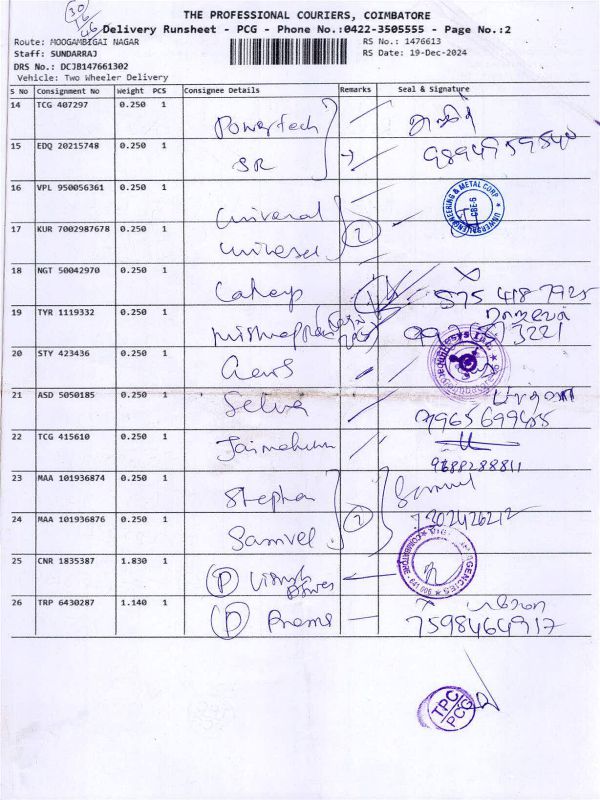 30
16
46
THE PROFESSIONAL COURIERS, COIMBATORE
Delivery Runsheet - PCG - Phone No.:0422-3505555 - Page No.:2
Route: MOOGAMBIGAI NAGAR
RS No.: 1476613
Staff: SUNDARRAJ
RS Date: 19-Dec-2024
DRS No.: DCJB147661302
Vehicle: Two Wheeler Delivery
S No Consignment No Weight PCS Consignee Details Remarks Seal & Signature
14 TCG 407297 0.250 1 Powertech
15 EDQ 20215748 0.250 1 SR 9894959540
16 VPL 950056361 0.250 1 Universal UNIVERSAL ENGINEERING & METAL CORP CBE-6
17 KUR 7002987678 0.250 1 Universal 2
18 NGT 50042970 0.250 1 575 418 7925
19 TYR 1119332 0.250 1 3221
20 STY 423436 0.250 1
21 ASD 5050185 0.250 1 Selva 7965699455
22 TCG 415610 0.250 1 9688288811
23 MAA 101936874 0.250 1 Stephan Samvel
24 MAA 101936876 0.250 1 Samvel 2 7302426212
25 CNR 1835387 1.830 1 P AGENCIES COIMBATORE
26 TRP 6430287 1.140 1 P Prems 7598464917
TPC
PCG